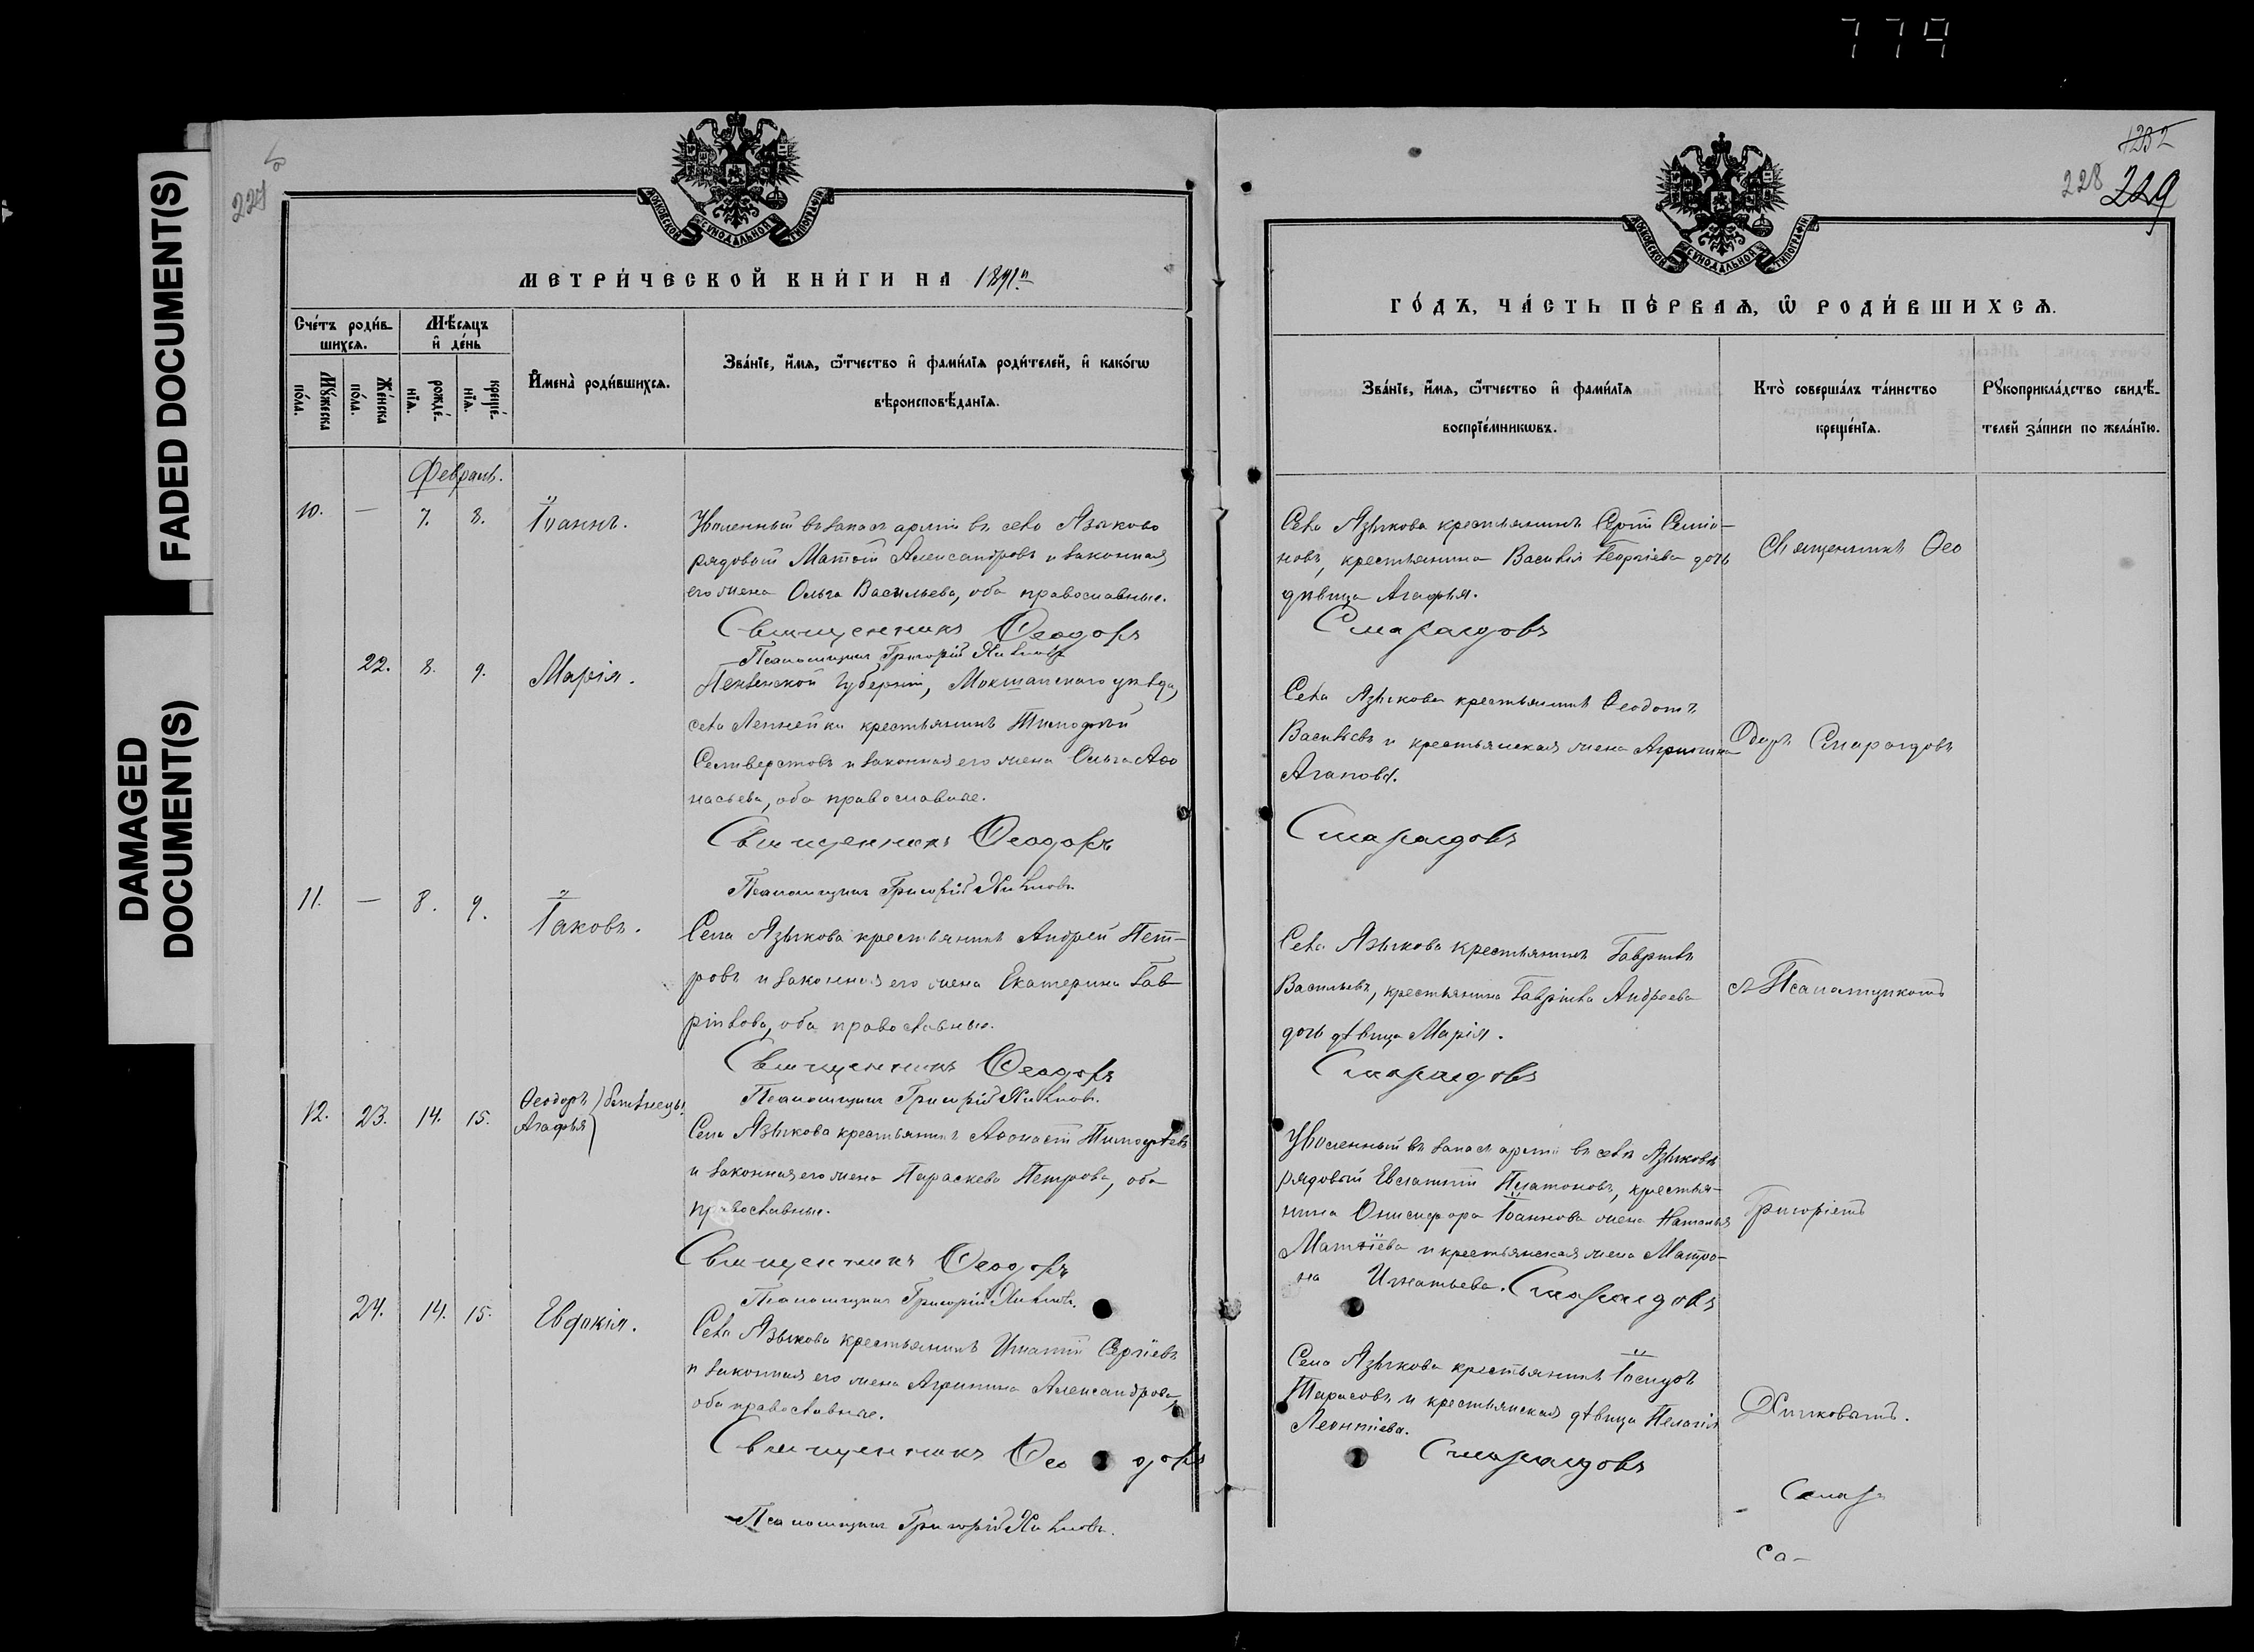 779
FADED DOCUMENT(S)
DAMAGED
DOCUMENT(S)
227
МОСКОВСКОЙ СѴНОДАЛЬНОЙ ТИПОГРАФІИ
МЕТРИ́ЧЕСКОЙ КНИ́ГИ НА 1891й
Сче́тъ роди́в-
шихсѧ.
Мѣ́сѧцъ
и҆ де́нь
Мꙋ́жеска
по́ла.
Же́нска
по́ла.
рожде́-
нїѧ.
креще́-
нїѧ.
И҆мена̀ роди́вшихсѧ.
Зва́нїе, и҆́мѧ, ѻ҆́тчество и҆ фами́лїѧ роди́телей, и҆ како́гѡ
вѣроисповѣ́данїѧ.
Февраль.
10. — 7. 8. Іоаннъ.
Уволенный въ запасъ арміи въ село Языково
рядовый Матѳій Александровъ и законная
его жена Ольга Васильева, оба православные.
Священникъ Ѳеодоръ
Псаломщикъ Григорій Хилковъ
22. 8. 9. Марія.
Пензенской губерніи, Мокшанскаго уѣзда,
села крестьянинъ Тимоѳей
Селиверстовъ и законная его жена Ольга Аѳо
насьева, оба православные.
Священникъ Ѳеодоръ
Псаломщикъ Григорій Хилковъ
11. — 8. 9. Іаковъ.
Села Языкова крестьянинъ Андрей Пет-
ровъ и законная его жена Екатерина Гав-
ріилова, оба православные.
Священникъ Ѳеодоръ
Псаломщикъ Григорій Хилковъ.
12. 23. 14. 15. Ѳеодоръ) близнецы.
Агафья)
Села Языкова крестьянинъ Аѳонасій Тимоѳеевъ
и законная его жена Параскева Петрова, оба
православные.
Священникъ Ѳеодоръ
Псаломщикъ Григорій Хилковъ.
24. 14. 15. Евдокія.
Села Языкова крестьянинъ Игнатій Сергіевъ
и законная его жена Агрипина Александрова,
оба православные.
Священникъ Ѳеодоръ
Псаломщикъ Григорій Хилковъ.
1232
228 229
МОСКОВСКОЙ СѴНОДАЛЬНОЙ ТИПОГРАФІИ
ГО́ДЪ, ЧА́СТЬ ПЕ́РВАѦ, Ѡ҆ РОДИ́ВШИХСѦ.
Зва́нїе, и҆́мѧ, ѻ҆́тчество и҆ фами́лїѧ
воспрїе́мникѡвъ.
Кто̀ соверша́лъ та́инство
креще́нїѧ.
Рꙋкоприкла́дство свидѣ́-
телей за́писи по жела́нїю.
Села Языкова крестьянинъ Сергій Симіо-
новъ, крестьянина Василія Георгіева дочь
дѣвица Агафья.
Смарагдовъ
Священникъ Ѳео
Села Языкова крестьянинъ Ѳеодотъ
Васильевъ и крестьянская жена Агрипина
Агапова.
Смарагдовъ
доръ Смарагдовъ
Села Языкова крестьянинъ Гавріилъ
Васильевъ, крестьянина Гавріила Андреева
дочь дѣвица Марія.
Смарагдовъ
съ Псаломщикомъ
Уволенный въ запасъ арміи въ селѣ Языковѣ
рядовый Евсигній Платоновъ, крестья-
нина Онисифора Іоаннова жена Наталья
Матѳіева и крестьянская жена Матро-
на Игнатьева. Смарагдовъ
Григоріемъ
Села Языкова крестьянинъ Іосифъ
Тарасовъ и крестьянская дѣвица Пелагія
Леонтіева.
Смарагдовъ
Хилковымъ.
Са-